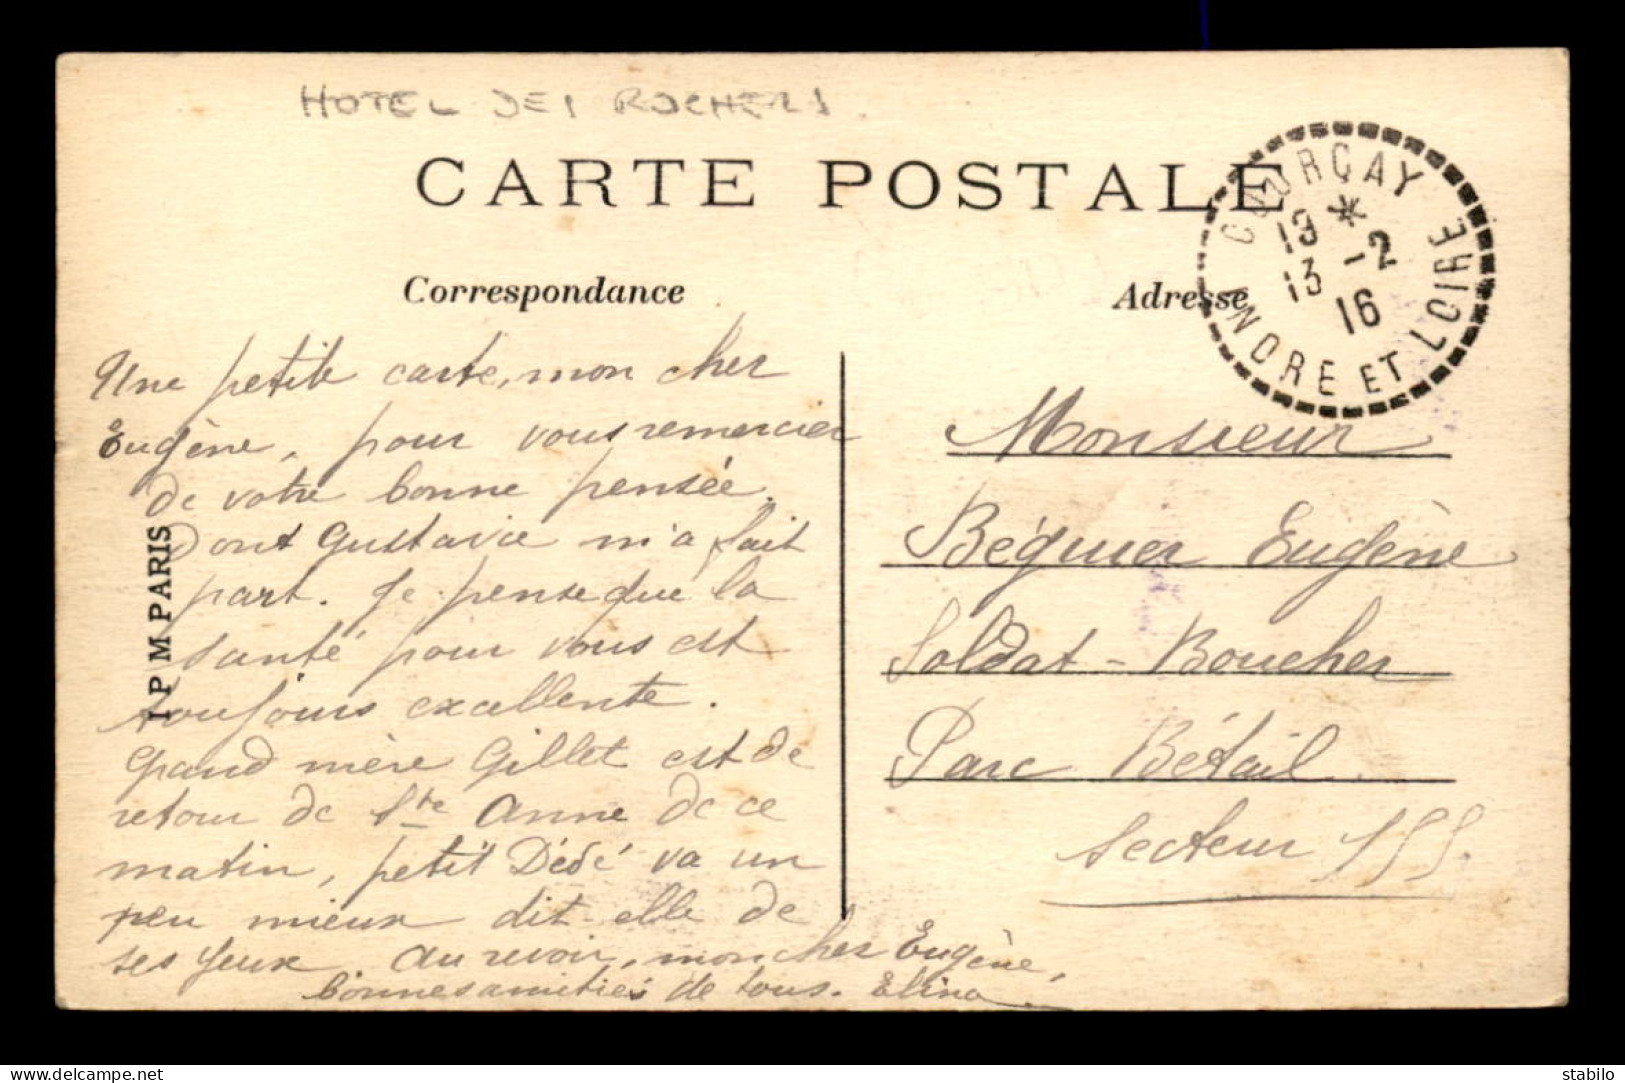 HOTEL DES ROCHERS.
CARTE POSTALE
Correspondance
Adresse
COURÇAY
19 *
13 -2
16
INDRE ET LOIRE
Une petite carte, mon cher
Eugène, pour vous remercier
de votre bonne pensée.
Dont Gustavie m'a fait
part. Je pense que la
santé pour vous est
toujours excellente.
Grand mère Gillet est de
retour de Ste Anne de ce
matin, petit Dédé va un
peu mieux dit-elle de
ses yeux. Au revoir, mon cher Eugène,
bonnes amitiés de tous. Elina
I P M PARIS
Monsieur
Béguier Eugène
Soldat-Boucher
Parc Bétail
Secteur 155.
stabilo
www.delcampe.net